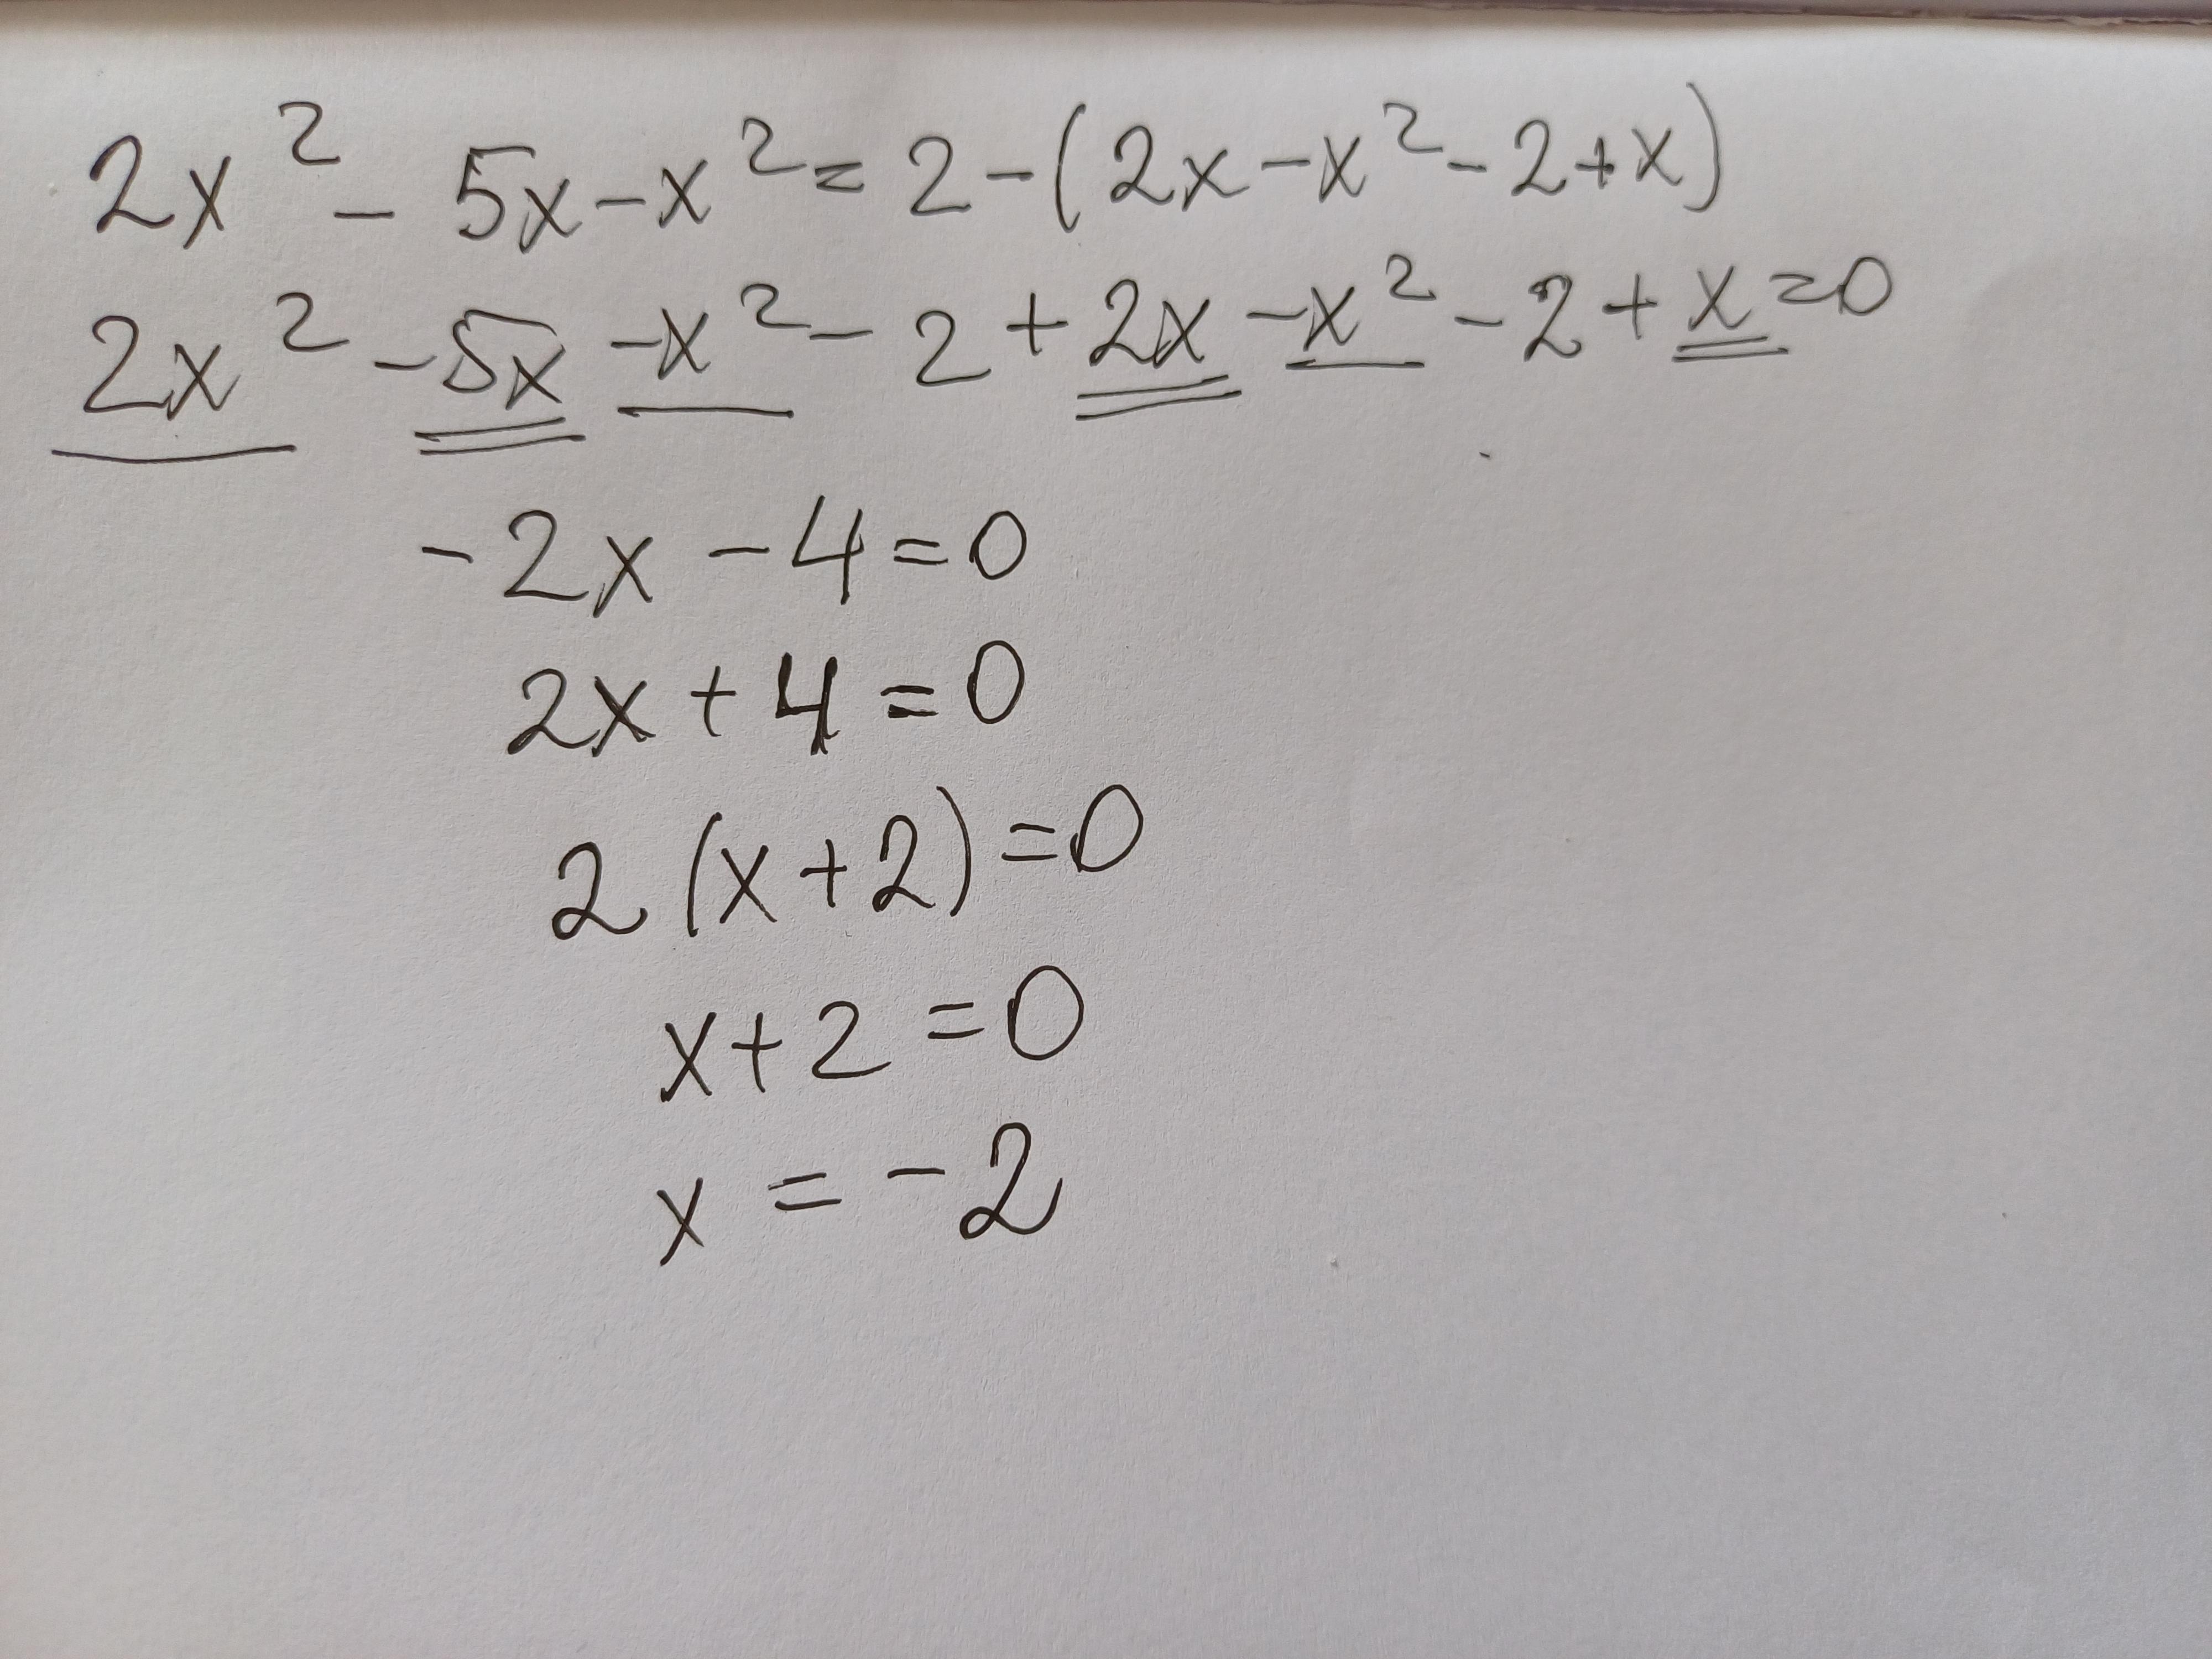 2x² - 5x - x² = 2 - (2x - x² - 2 + x)
2x² - 5x - x² - 2 + 2x - x² - 2 + x = 0
-2x - 4 = 0
2x + 4 = 0
2(x + 2) = 0
x + 2 = 0
x = -2